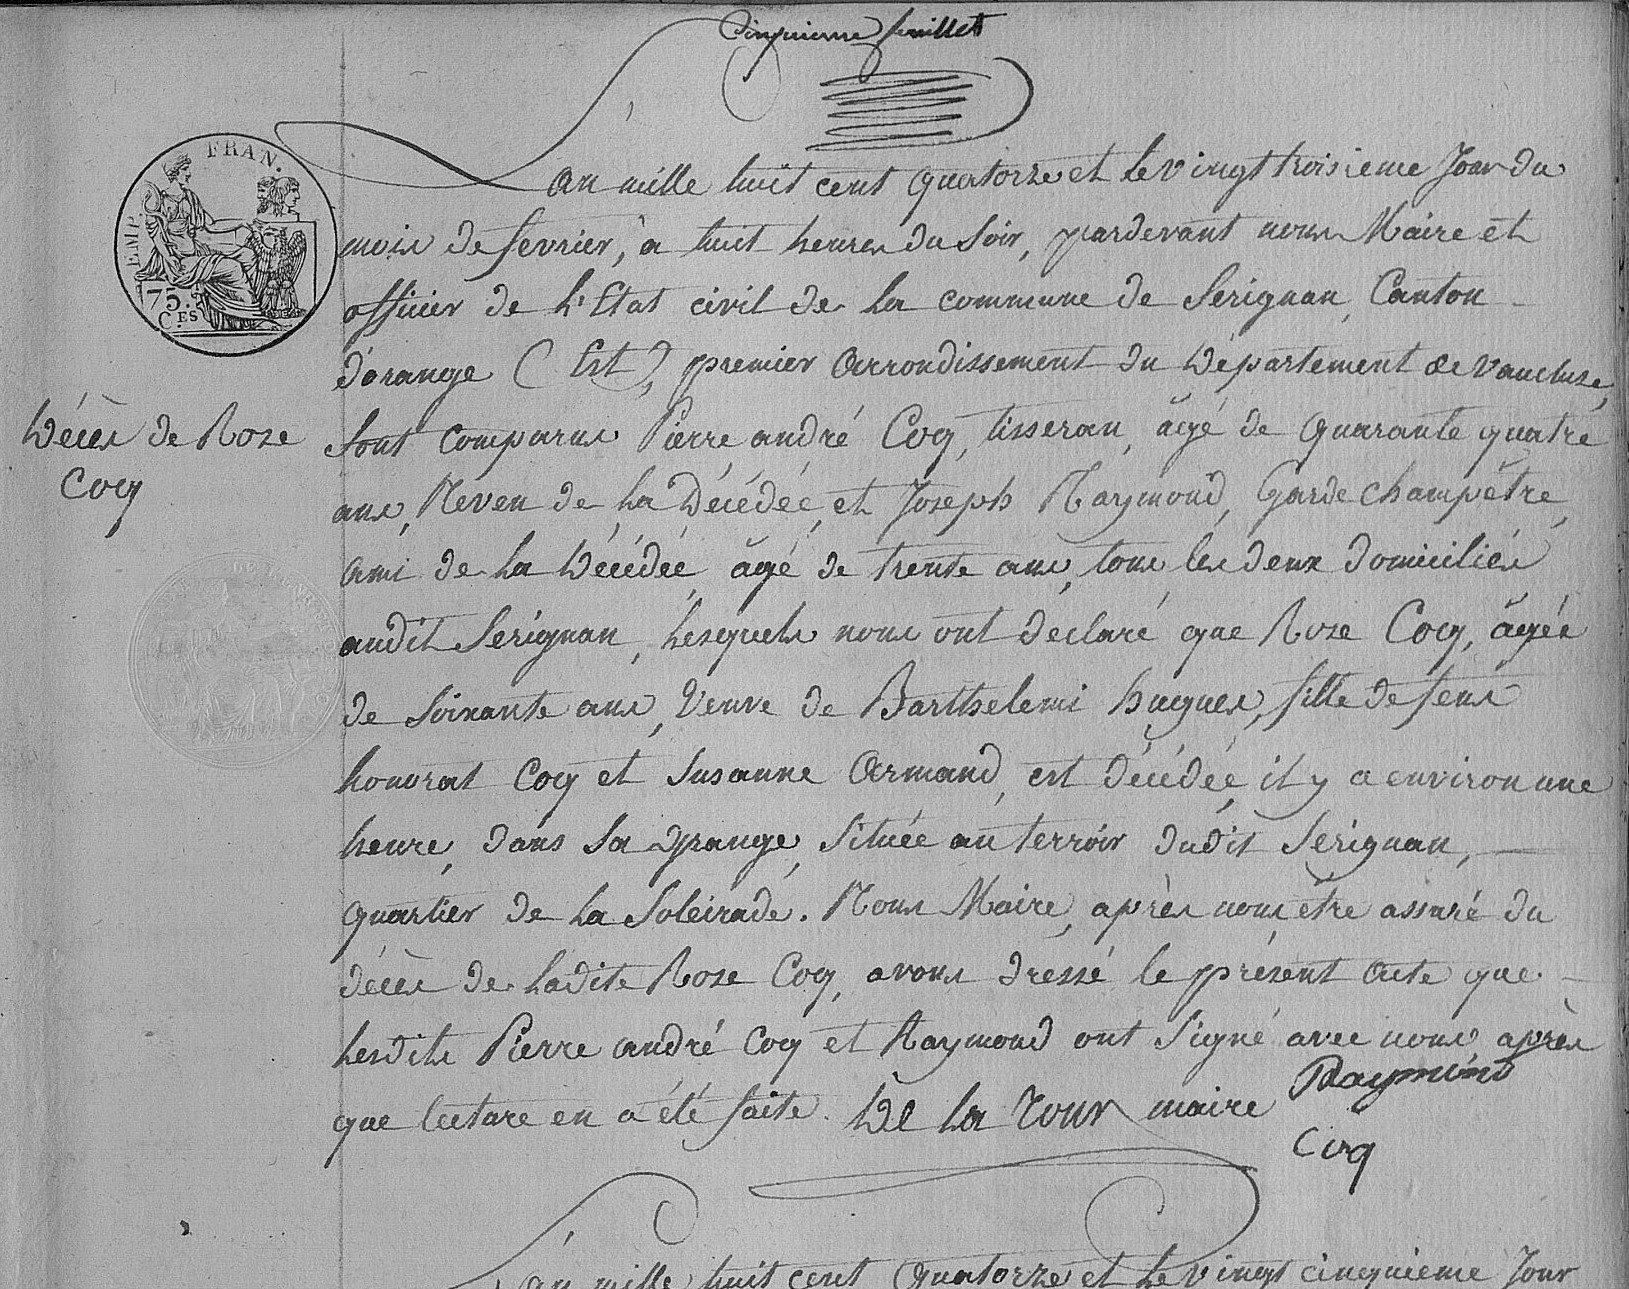 Cinquieme feuillet
EMP. FRAN.
75.
C.ES
an mille huit cent quatorze et le vingt troisieme Jour du
mois de fevrier, à huit heures du Soir, pardevant nous Maire et
officier de l'Etat civil de la commune de Serignan, Canton
d'orange (Est), premier arrondissement du Département de Vaucluse,
Sont comparus Pierre andré Coq, tisseran, âgé de quarante quatre
Décès de Rose
Coq
ans, Neveu de la Décédée, et Joseph Raymond, Garde champêtre,
ami de la Décédée, âgé de trente ans, tous les deux domiciliés
audit Serignan, lesquels nous ont declaré que Rose Coq, âgée
de Soixante ans, Veuve de Barthelemi hugues, fille de feus
honorat Coq et Susanne Armand, est décédée, il y a environ une
heure, dans Sa grange, Située au terroir dudit Serignan,
quartier de la Soleirade. Nous Maire, après nous être assuré du
décès de ladite Rose Coq, avons dressé le présent acte que
lesdits Pierre andré Coq et Raymond ont Signé avec nous après
que lecture en a été faite. De la Tour maire Raymond
Coq
an mille huit cent quatorze et le vingt cinquieme Jour